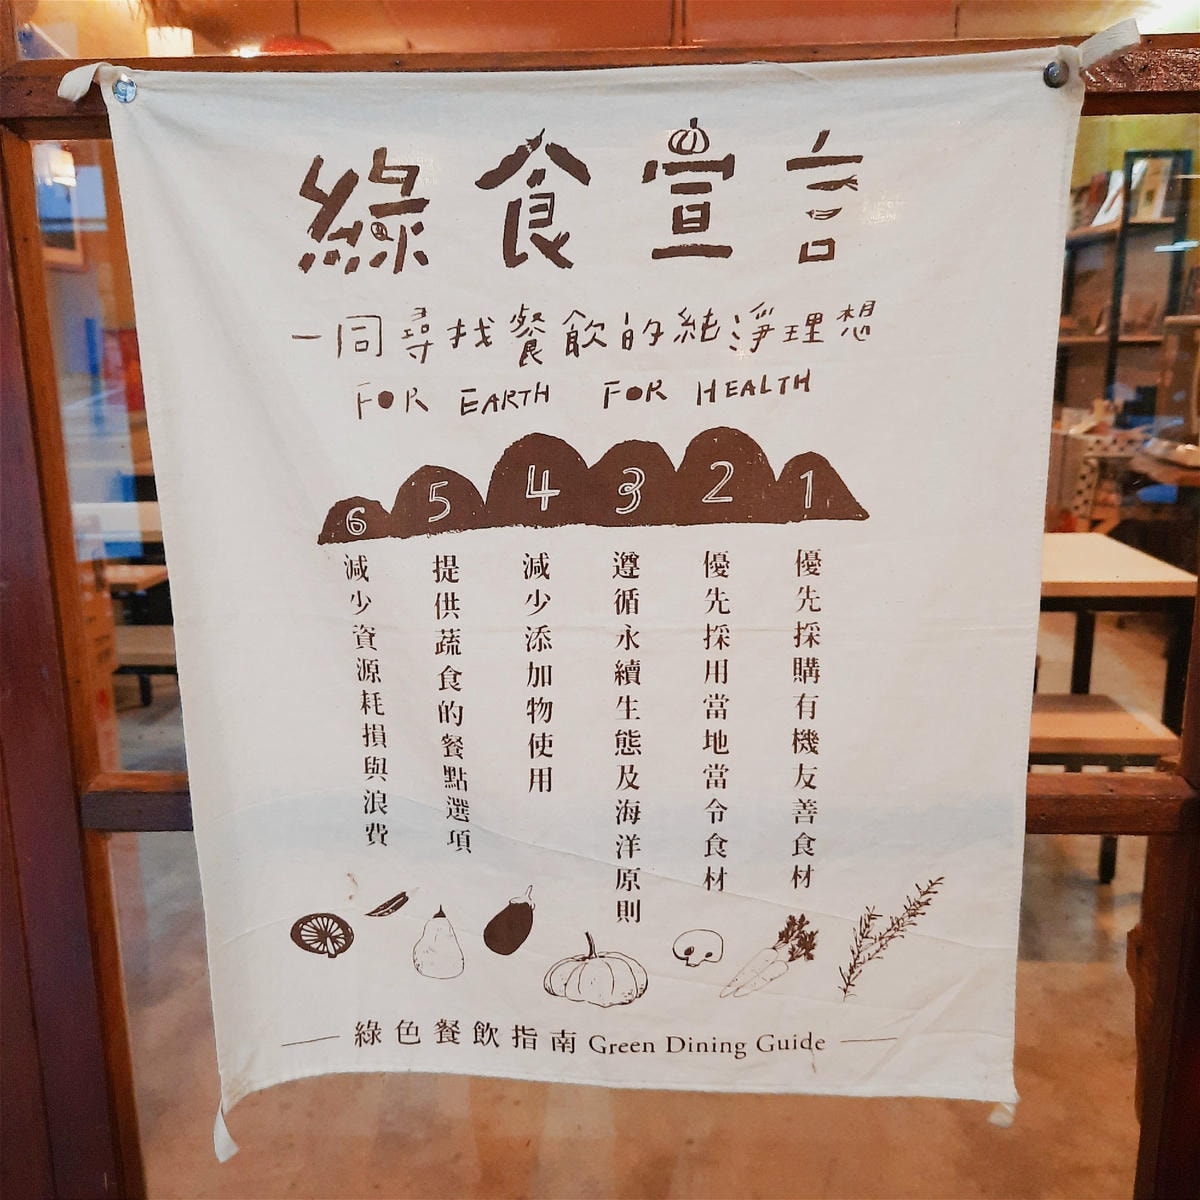 綠食宣言
一同尋找餐飲的純淨理想
FOR EARTH FOR HEALTH
1
優先採購有機友善食材
2
優先採用當地當令食材
3
遵循永續生態及海洋原則
4
減少添加物使用
5
提供蔬食的餐點選項
6
減少資源耗損與浪費
綠色餐飲指南 Green Dining Guide